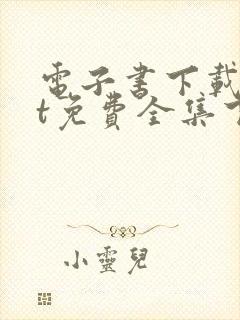 電子書下載
t免費全集
小靈兒